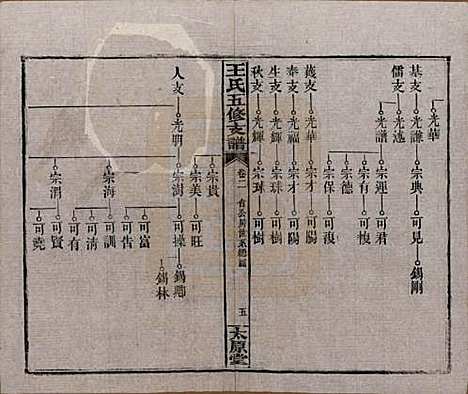 光華
基支 光謙 宗典 可見 錫剛
儒支 光遠
光譜 宗運 可君
宗有 可複
宗德
宗保 可複
蕆支 光華 宗才 可陽
奉支 光福 宗才 可陽
生支 光輝 宗球 可樹
秋支 光輝 宗球 可樹
王氏五修支譜
卷二
五
太原堂
宗貴
宗美 可旺
人支 光明 宗澍 可操 錫卿
錫林
可富
宗海 可告
可訓
可清
宗潤 可有
可賓
可堯